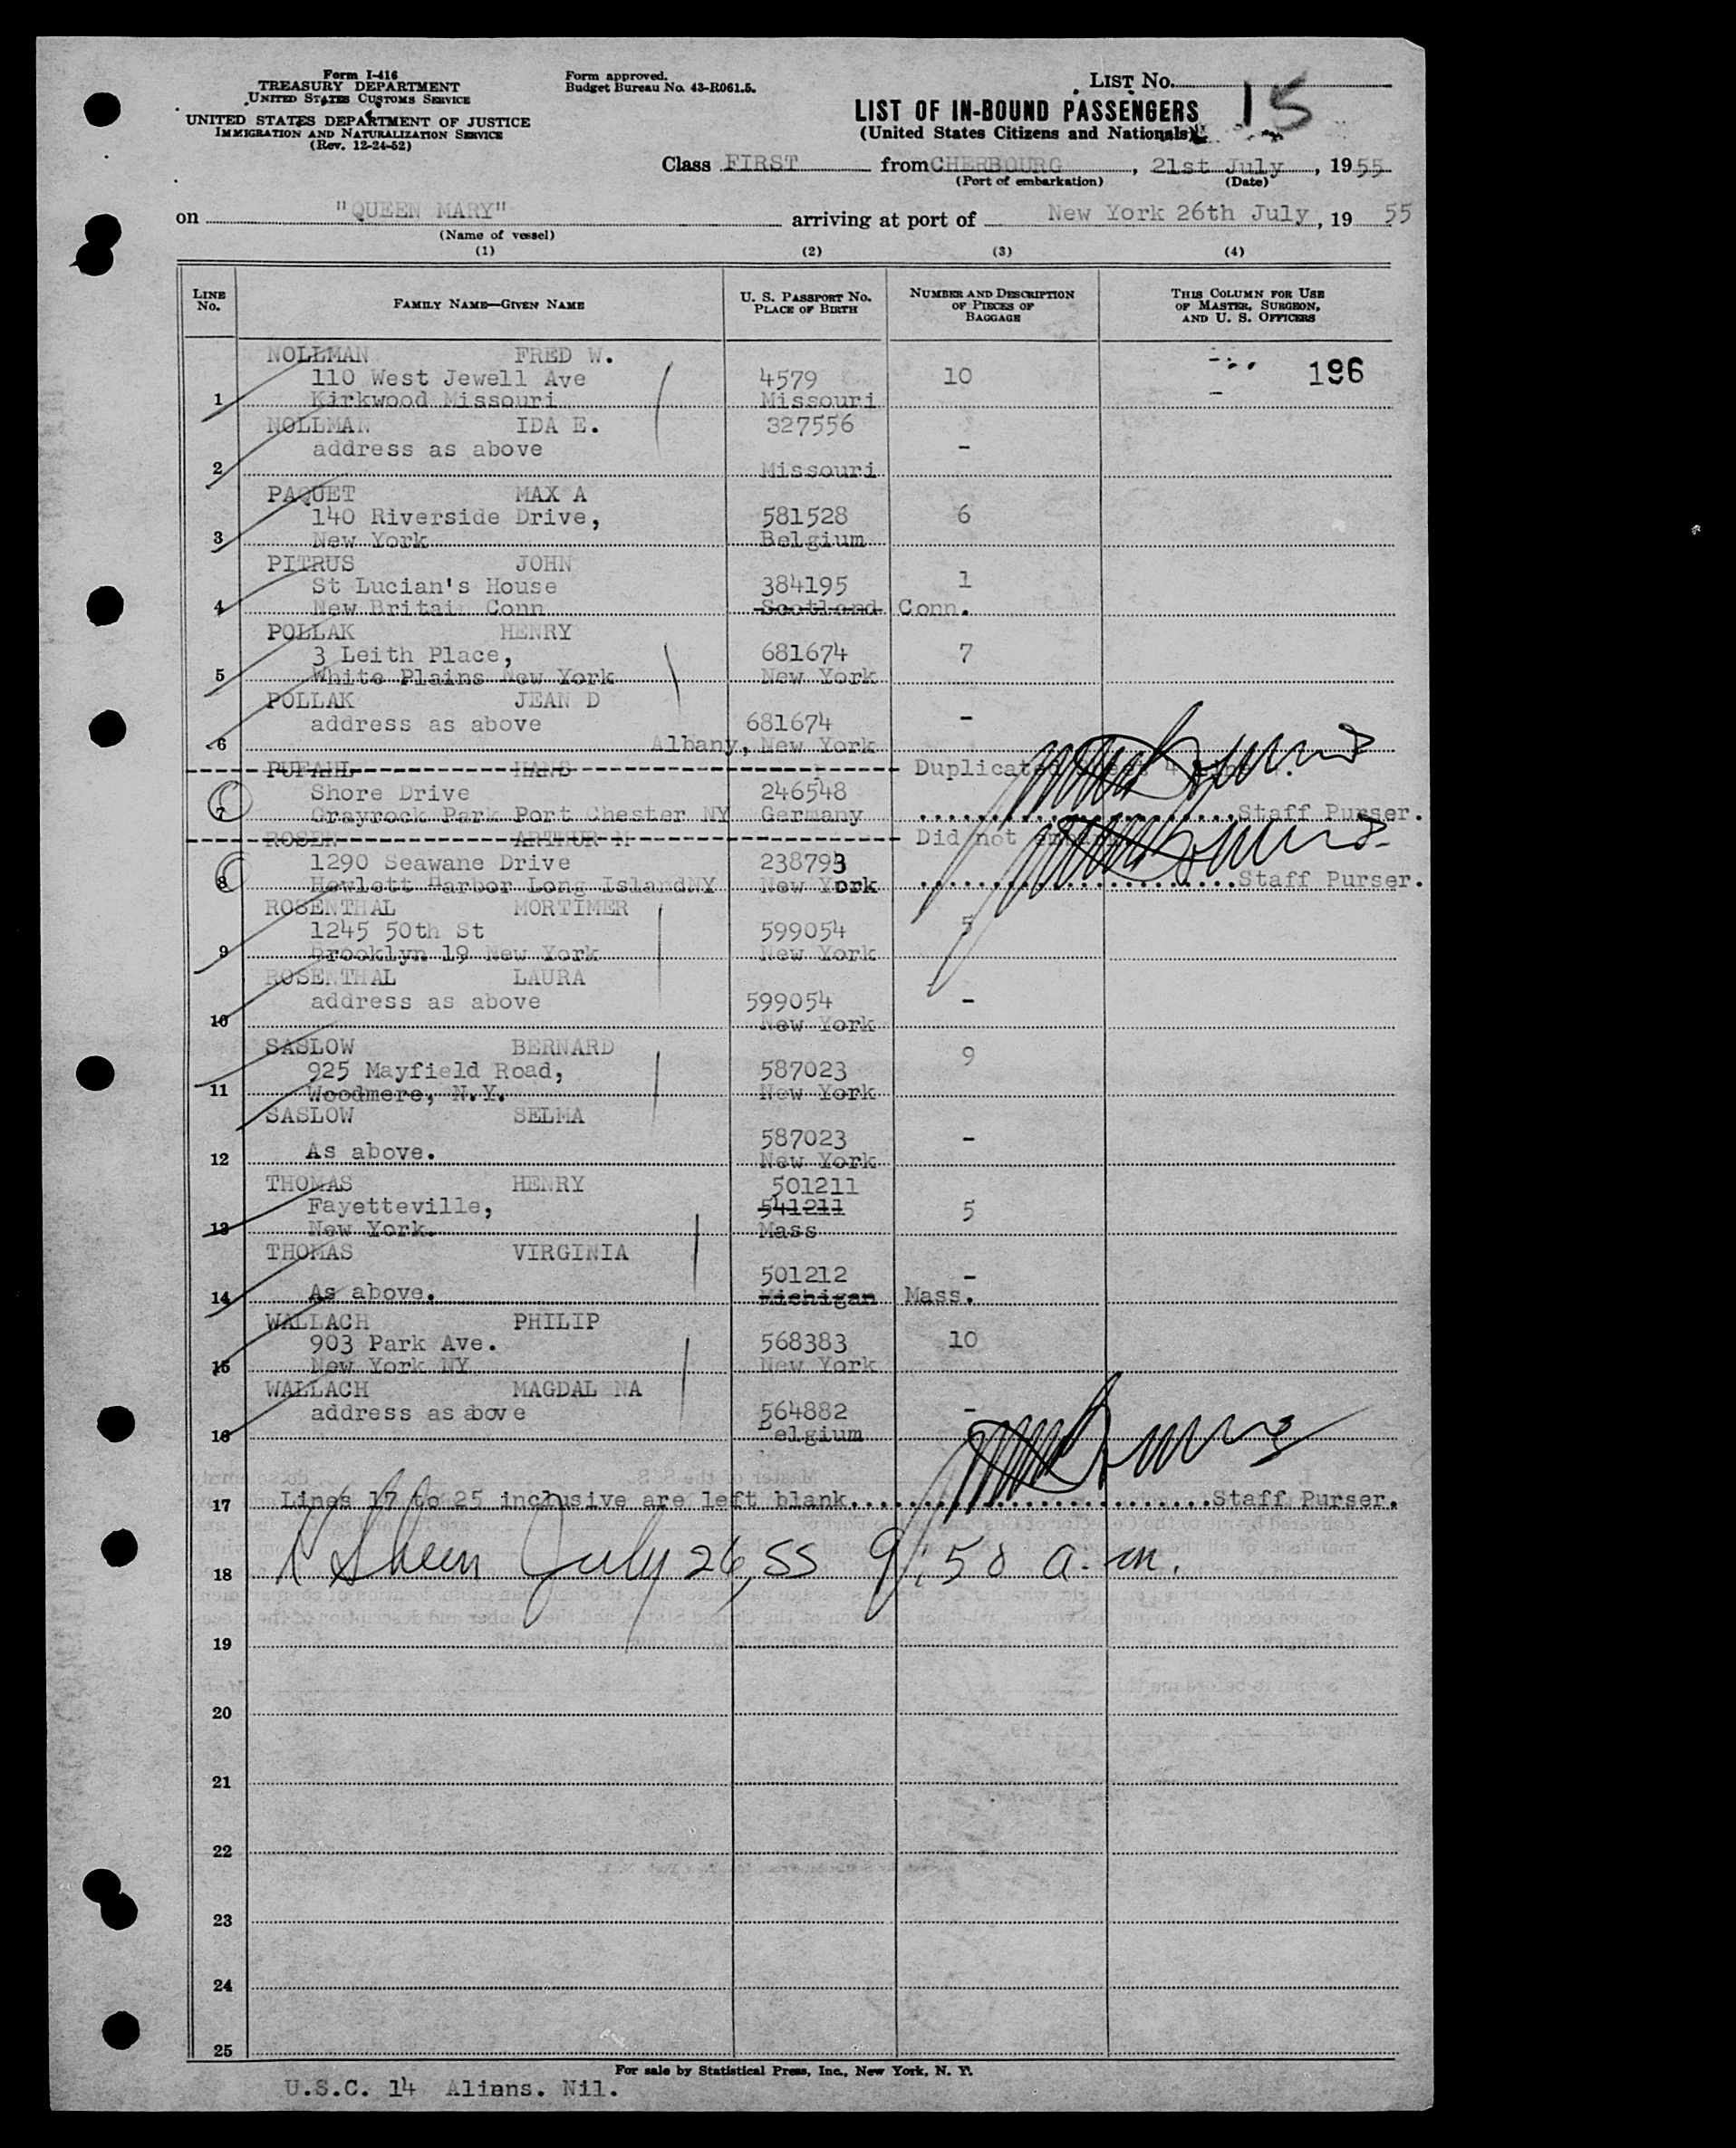 Form I-416
TREASURY DEPARTMENT
UNITED STATES CUSTOMS SERVICE
UNITED STATES DEPARTMENT OF JUSTICE
IMMIGRATION AND NATURALIZATION SERVICE
(Rev. 12-24-52)
Form approved.
Budget Bureau No. 43-R061.5.
LIST No. 15
LIST OF IN-BOUND PASSENGERS
(United States Citizens and Nationals)
Class FIRST from CHERBOURG, 21st July, 1955
(Port of embarkation) (Date)
on "QUEEN MARY" arriving at port of New York 26th July, 19 55
(Name of vessel)
(1) (2) (3) (4)
LINE No. FAMILY NAME—GIVEN NAME U. S. PASSPORT No. PLACE OF BIRTH NUMBER AND DESCRIPTION OF PIECES OF BAGGAGE THIS COLUMN FOR USE OF MASTER, SURGEON, AND U. S. OFFICERS
NOLLMAN FRED W.
110 West Jewell Ave 4579 10 196
1 Kirkwood Missouri Missouri
NOLLMAN IDA E. 327556
address as above -
2 Missouri
PAQUET MAX A
140 Riverside Drive, 581528 6
3 New York Belgium
PITRUS JOHN
St Lucian's House 384195 1
4 New Britain Conn Scotland Conn.
POLLAK HENRY
3 Leith Place, 681674 7
5 White Plains New York New York
POLLAK JEAN D
address as above 681674 -
6 Albany, New York
PUFAHL HANS Duplicated
Shore Drive 246548
7 Grayrock Park Port Chester NY Germany Staff Purser.
ROSEN ARTHUR M Did not
1290 Seawane Drive 238793
8 Hewlett Harbor Long IslandNY New York Staff Purser.
ROSENTHAL MORTIMER
1245 50th St 599054 5
9 Brooklyn 19 New York New York
ROSENTHAL LAURA
address as above 599054 -
10 New York
SASLOW BERNARD 9
925 Mayfield Road, 587023
11 Woodmere, N.Y. New York
SASLOW SELMA
587023 -
12 As above. New York
THOMAS HENRY 501211
Fayetteville, 541211 5
13 New York. Mass
THOMAS VIRGINIA
501212 -
14 As above. Michigan Mass.
WALLACH PHILIP
903 Park Ave. 568383 10
15 New York NY New York
WALLACH MAGDAL NA
address as above 564882 -
16 Belgium
17 Lines 17 to 25 inclusive are left blank. Staff Purser.
18 July 26, 55 9:50 a.m.
19
20
21
22
23
24
25
For sale by Statistical Press, Inc., New York, N. Y.
U.S.C. 14 Alians. Nil.